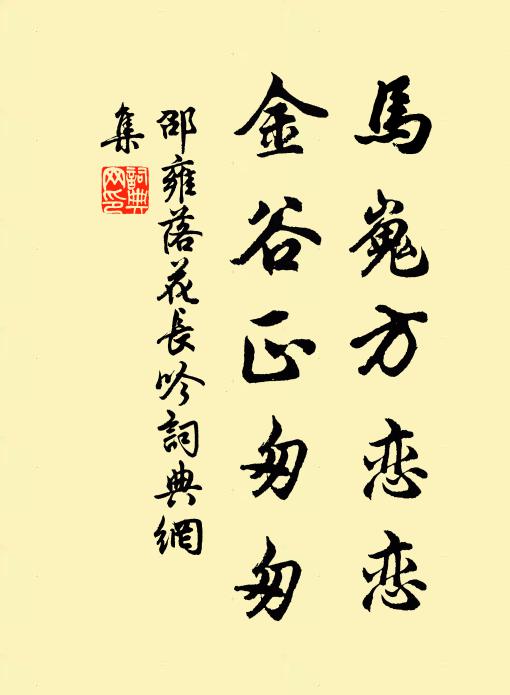 馬嵬方恋恋
金谷正匆匆
邵雍落花長吟詞典網
集
詞典网印